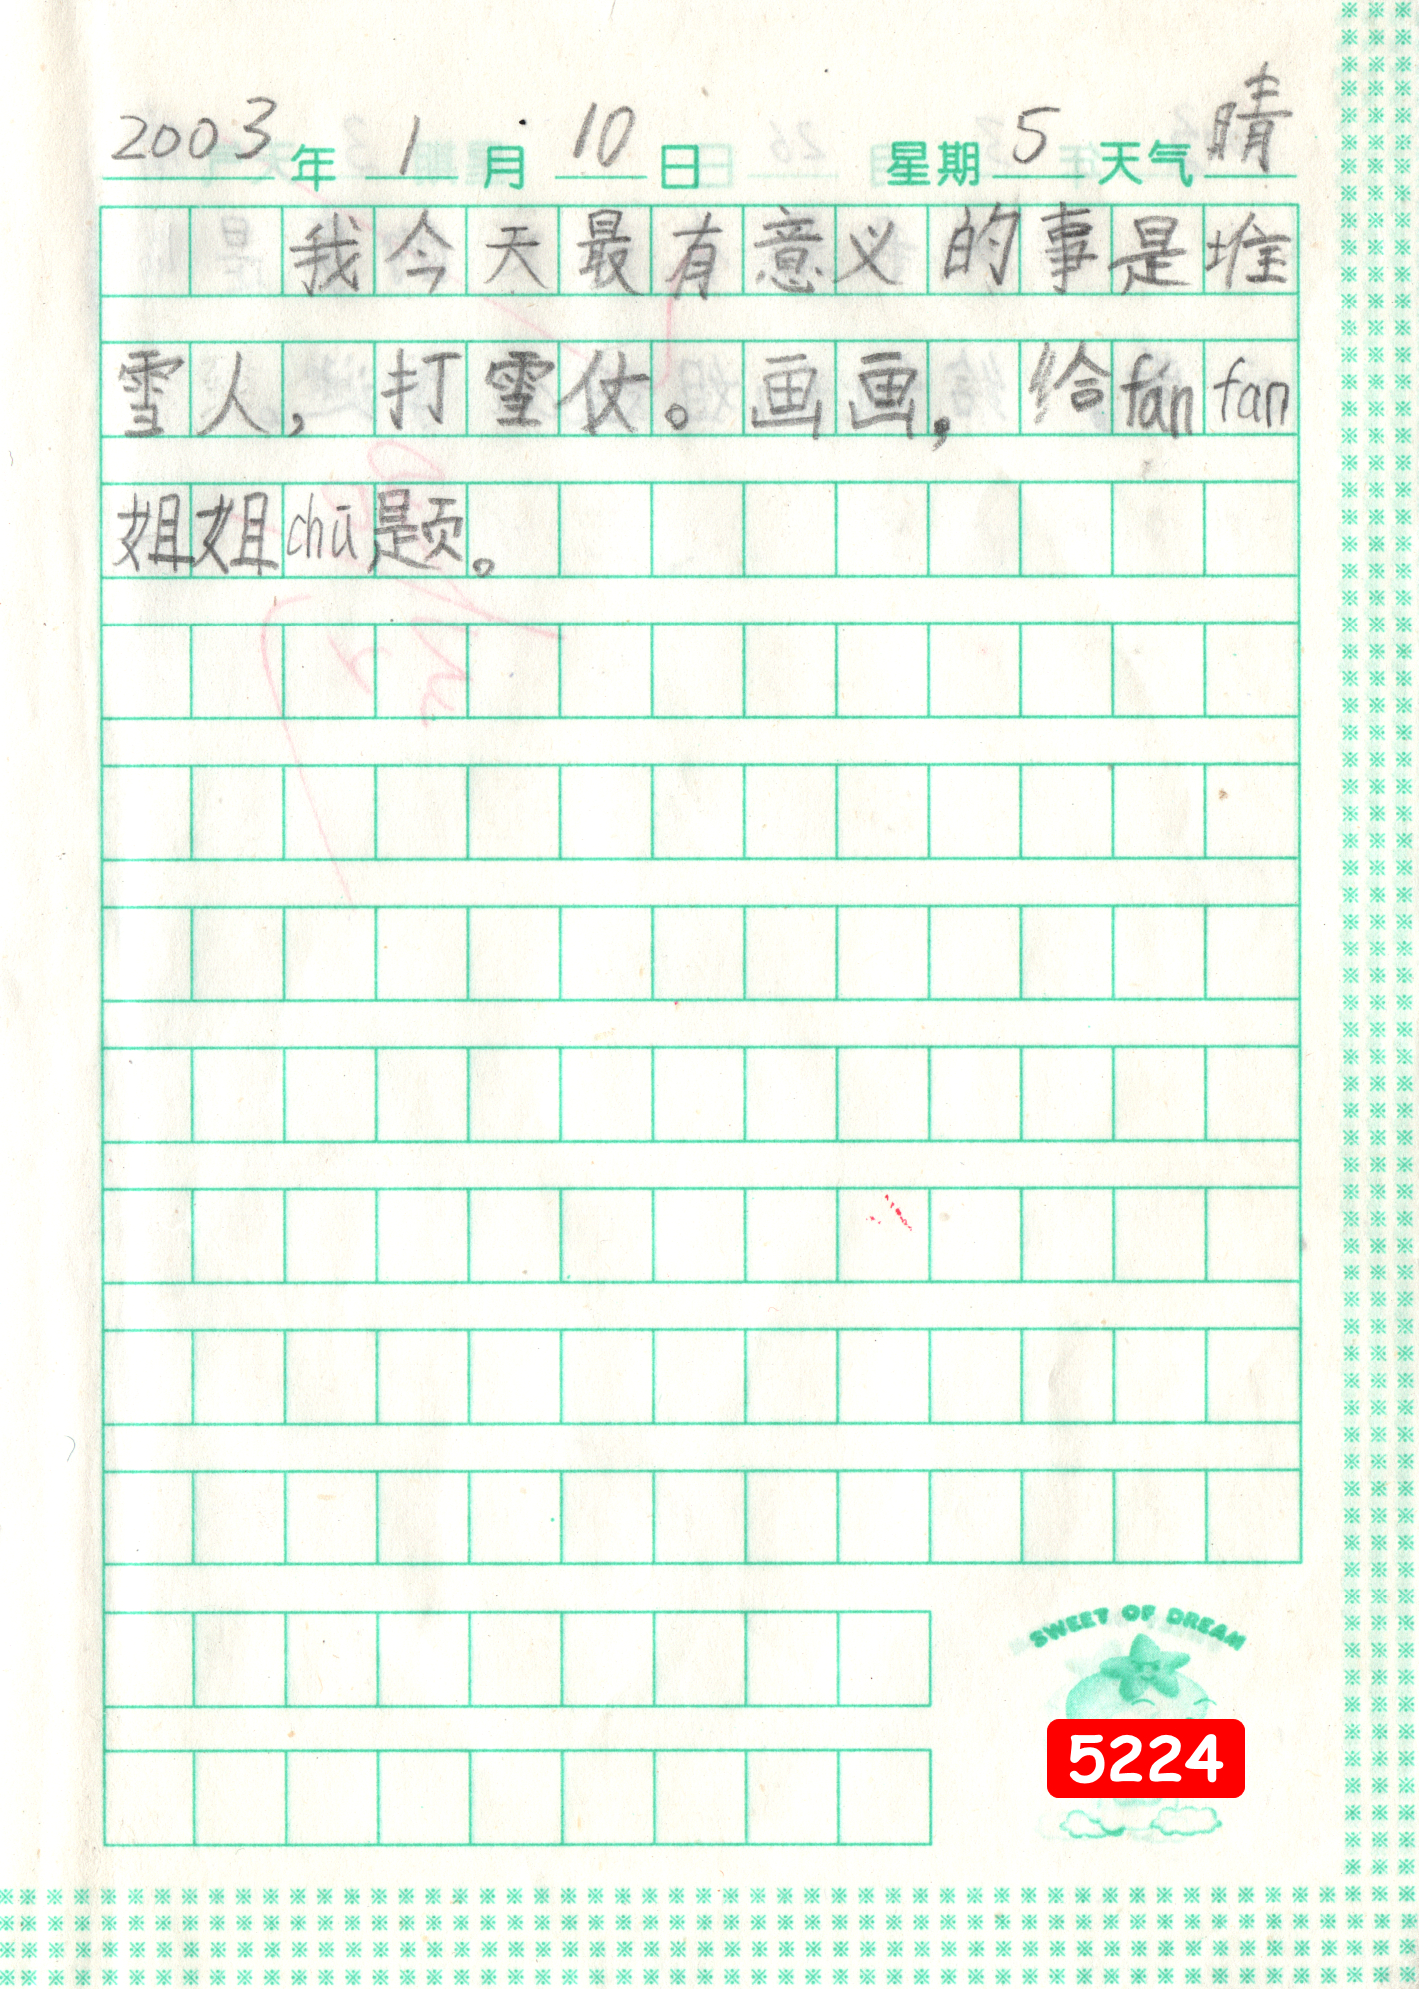 2003年1月10日 星期5天气晴
我今天最有意义的事是堆
雪人，打雪仗。画画，给fán fan
姐姐chū题。
SWEET OF DREAM
5224